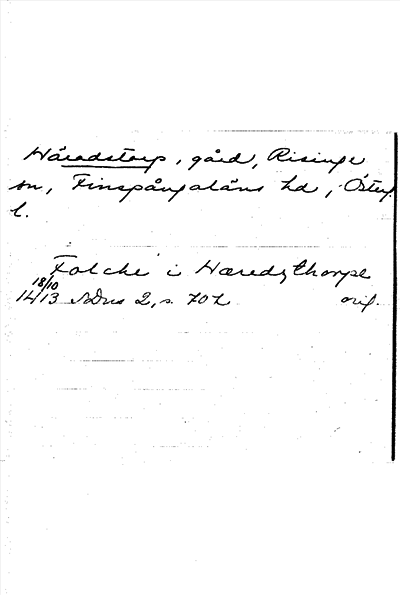 Häradstorp, gård, Risinge
sn, Finspångaläns hd, Österg.
l.
Folche i Hæredzthorpe
18/10
1413 SDns 2, s. 702 orig.